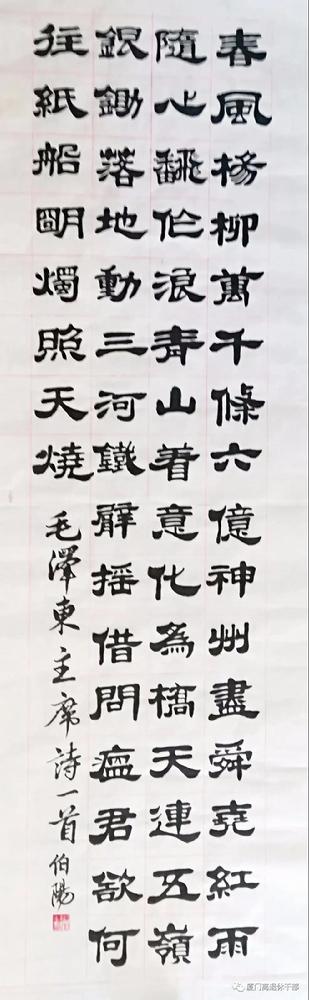 春風楊柳萬千條六億神州盡舜堯紅雨
隨心翻作浪青山着意化為橋天連五嶺
銀鋤落地動三河鐵臂摇借問瘟君欲何
往紙船明燭照天燒
毛澤東主席詩一首 伯陽
厦门离退休干部